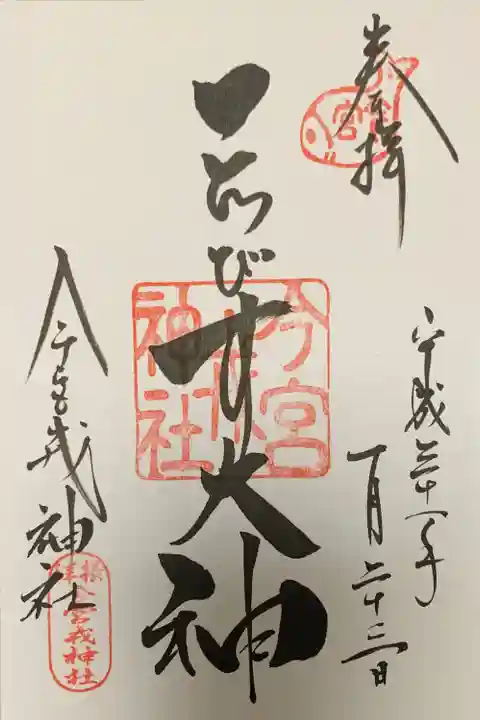 奉拝
平成三十一年
一月二十三日
ゑびす大神
今宮戎神社
今宮戎神社
今宮戎神社